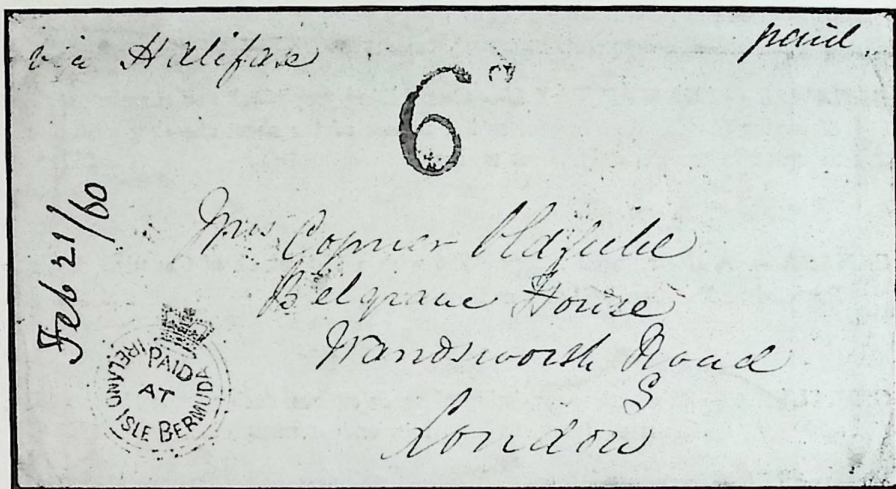 via Halifax
paid
6D
Feb 21/60
Mrs Copner Oldfield
Belgrave House
Wandsworth Road
S
London
PAID
AT
IRELAND ISLE BERMUDA